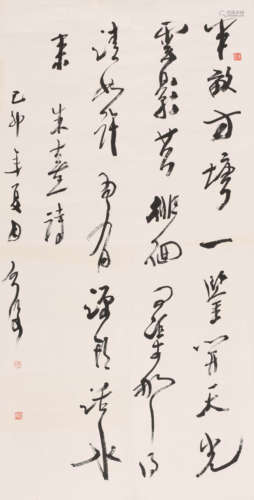 半畝方塘一鑒開天光
雲影共徘徊問渠那得
清如許為有源頭活水
來 朱熹詩
己卯年夏月